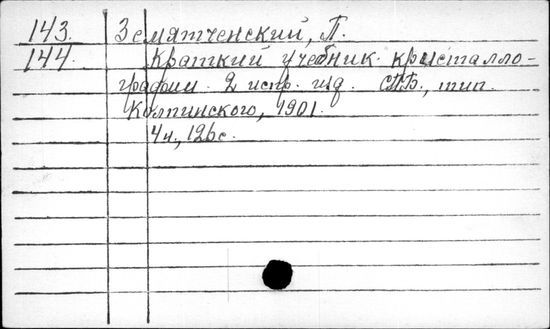 143. Земятченский, П.
144. Краткий учебник кристалло-
графии. 2 испр. изд. СПБ., тип.
Колпинского, 1901.
4ч., 126с.